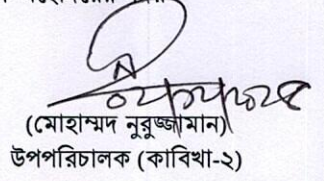 (মোহাম্মদ নুরুজ্জামান)
উপপরিচালক (কাবিখা-২)